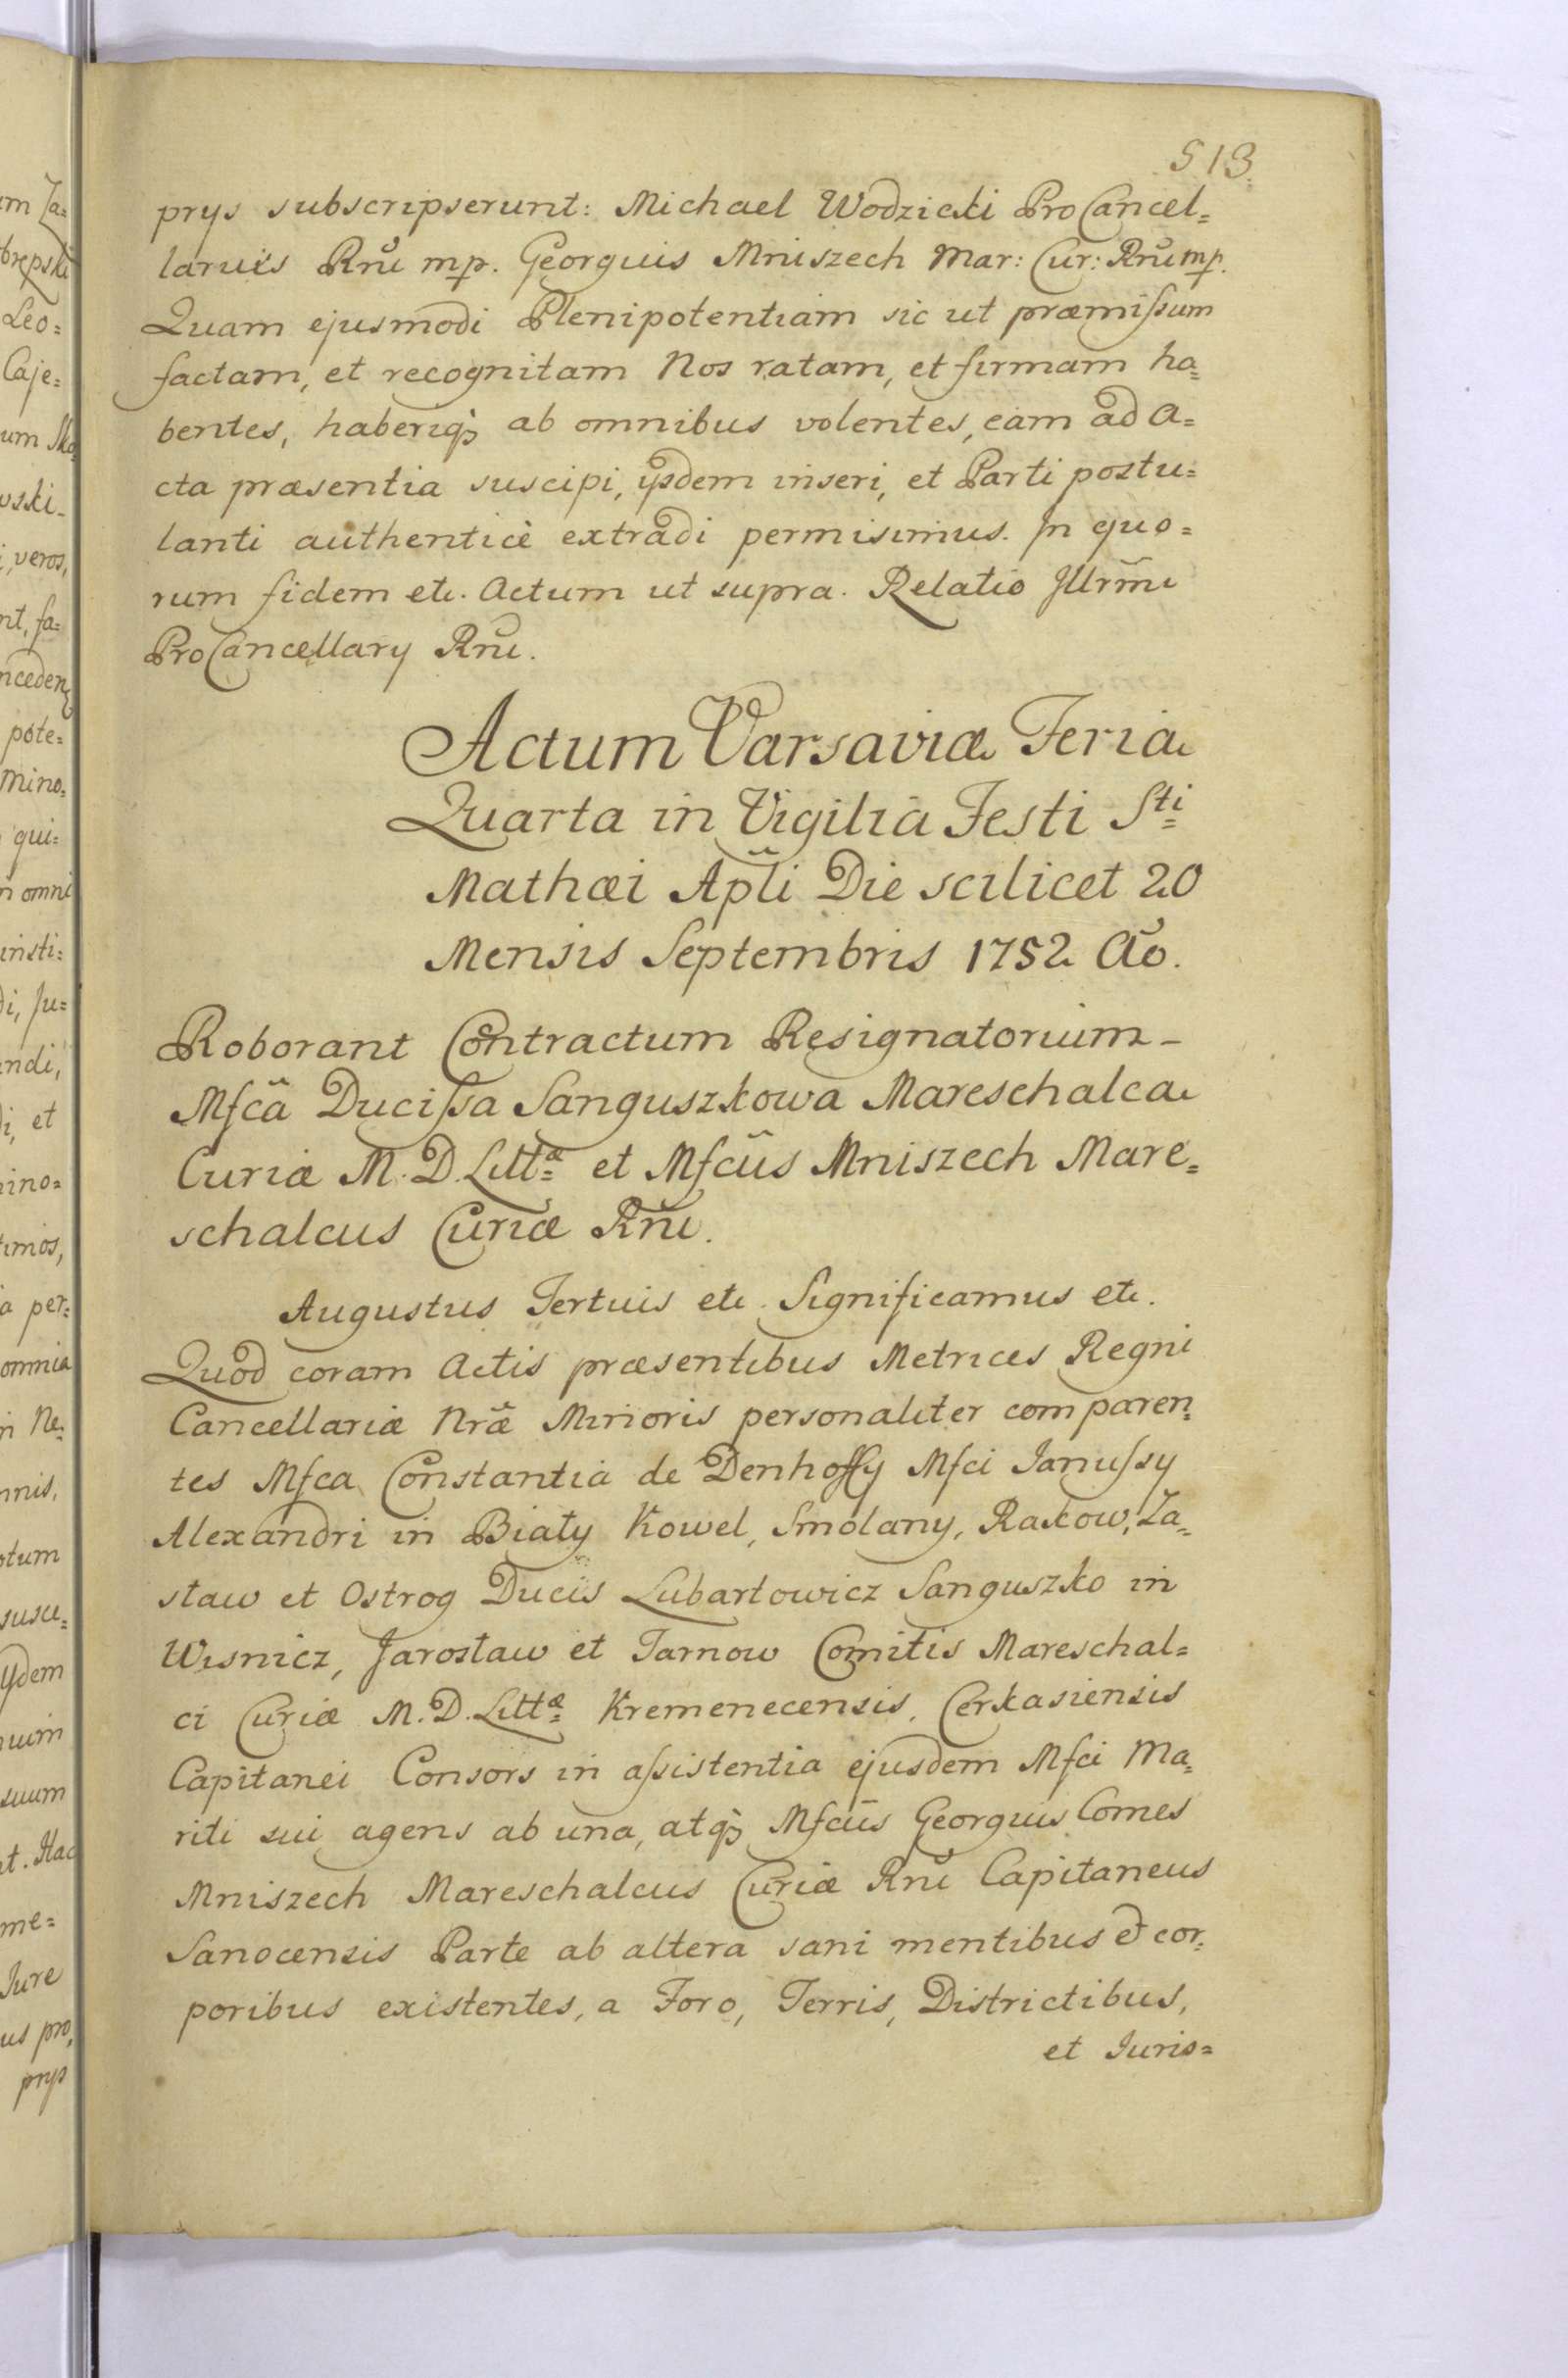 513.
prys subscripserunt: Michael Wodzicki ProCancel=
larius Rnĩ mp. Georgius Mniszech Mar: Cur: Rnĩ mp.
Quam ejusmodi Plenipotentiam sic ut præmissum
factam, et recognitam Nos ratam, et firmam ha=
bentes, haberiq̃ ab omnibus volentes, eam ad A=
cta præsentia suscipi, ijsdem inseri, et Parti postu=
lanti authenticè extradi permisimus. In quo=
rum fidem etc. Actum ut supra. Relatio Illrm̃i
ProCancellary Rnĩ.
Actum Varsaviæ Feria
Quarta in Vigilia Festi Sti
Mathæi Apl̃i Die scilicet 20
Mensis Septembris 1752 Ao.
Roborant Contractum Resignatorium
Mfcã Ducissa Sanguszkowa Mareschalca
Curiæ M. D. Littæ et Mfcũs Mniszech Mare=
schalcus Curiæ Rnĩ.
Augustus Tertius etc. Significamus etc.
Quod coram Actis præsentibus Metrices Regni
Cancellariæ Nræ̃ Minoris personaliter comparen=
tes Mfca Constantia de Denhoffy Mfci Janussy
Alexandri in Biały Kowel, Smolany, Rakow, Za=
sław et Ostrog Ducis Lubartowicz Sanguszko in
Wisnicz, Jarosław et Tarnow Comitis Mareschal=
ci Curiæ M. D. Littæ Kremenecensis, Cerkasiensis
Capitanei Consors in assistentia ejusdem Mfci Ma=
riti sui agens ab una, atq̃ Mfcũs Georgius Comes
Mniszech Mareschalcus Curiæ Rnĩ Capitaneus
Sanocensis Parte ab altera sani mentibus et cor=
poribus existentes, a Foro, Terris, Districtibus,
et Juris=